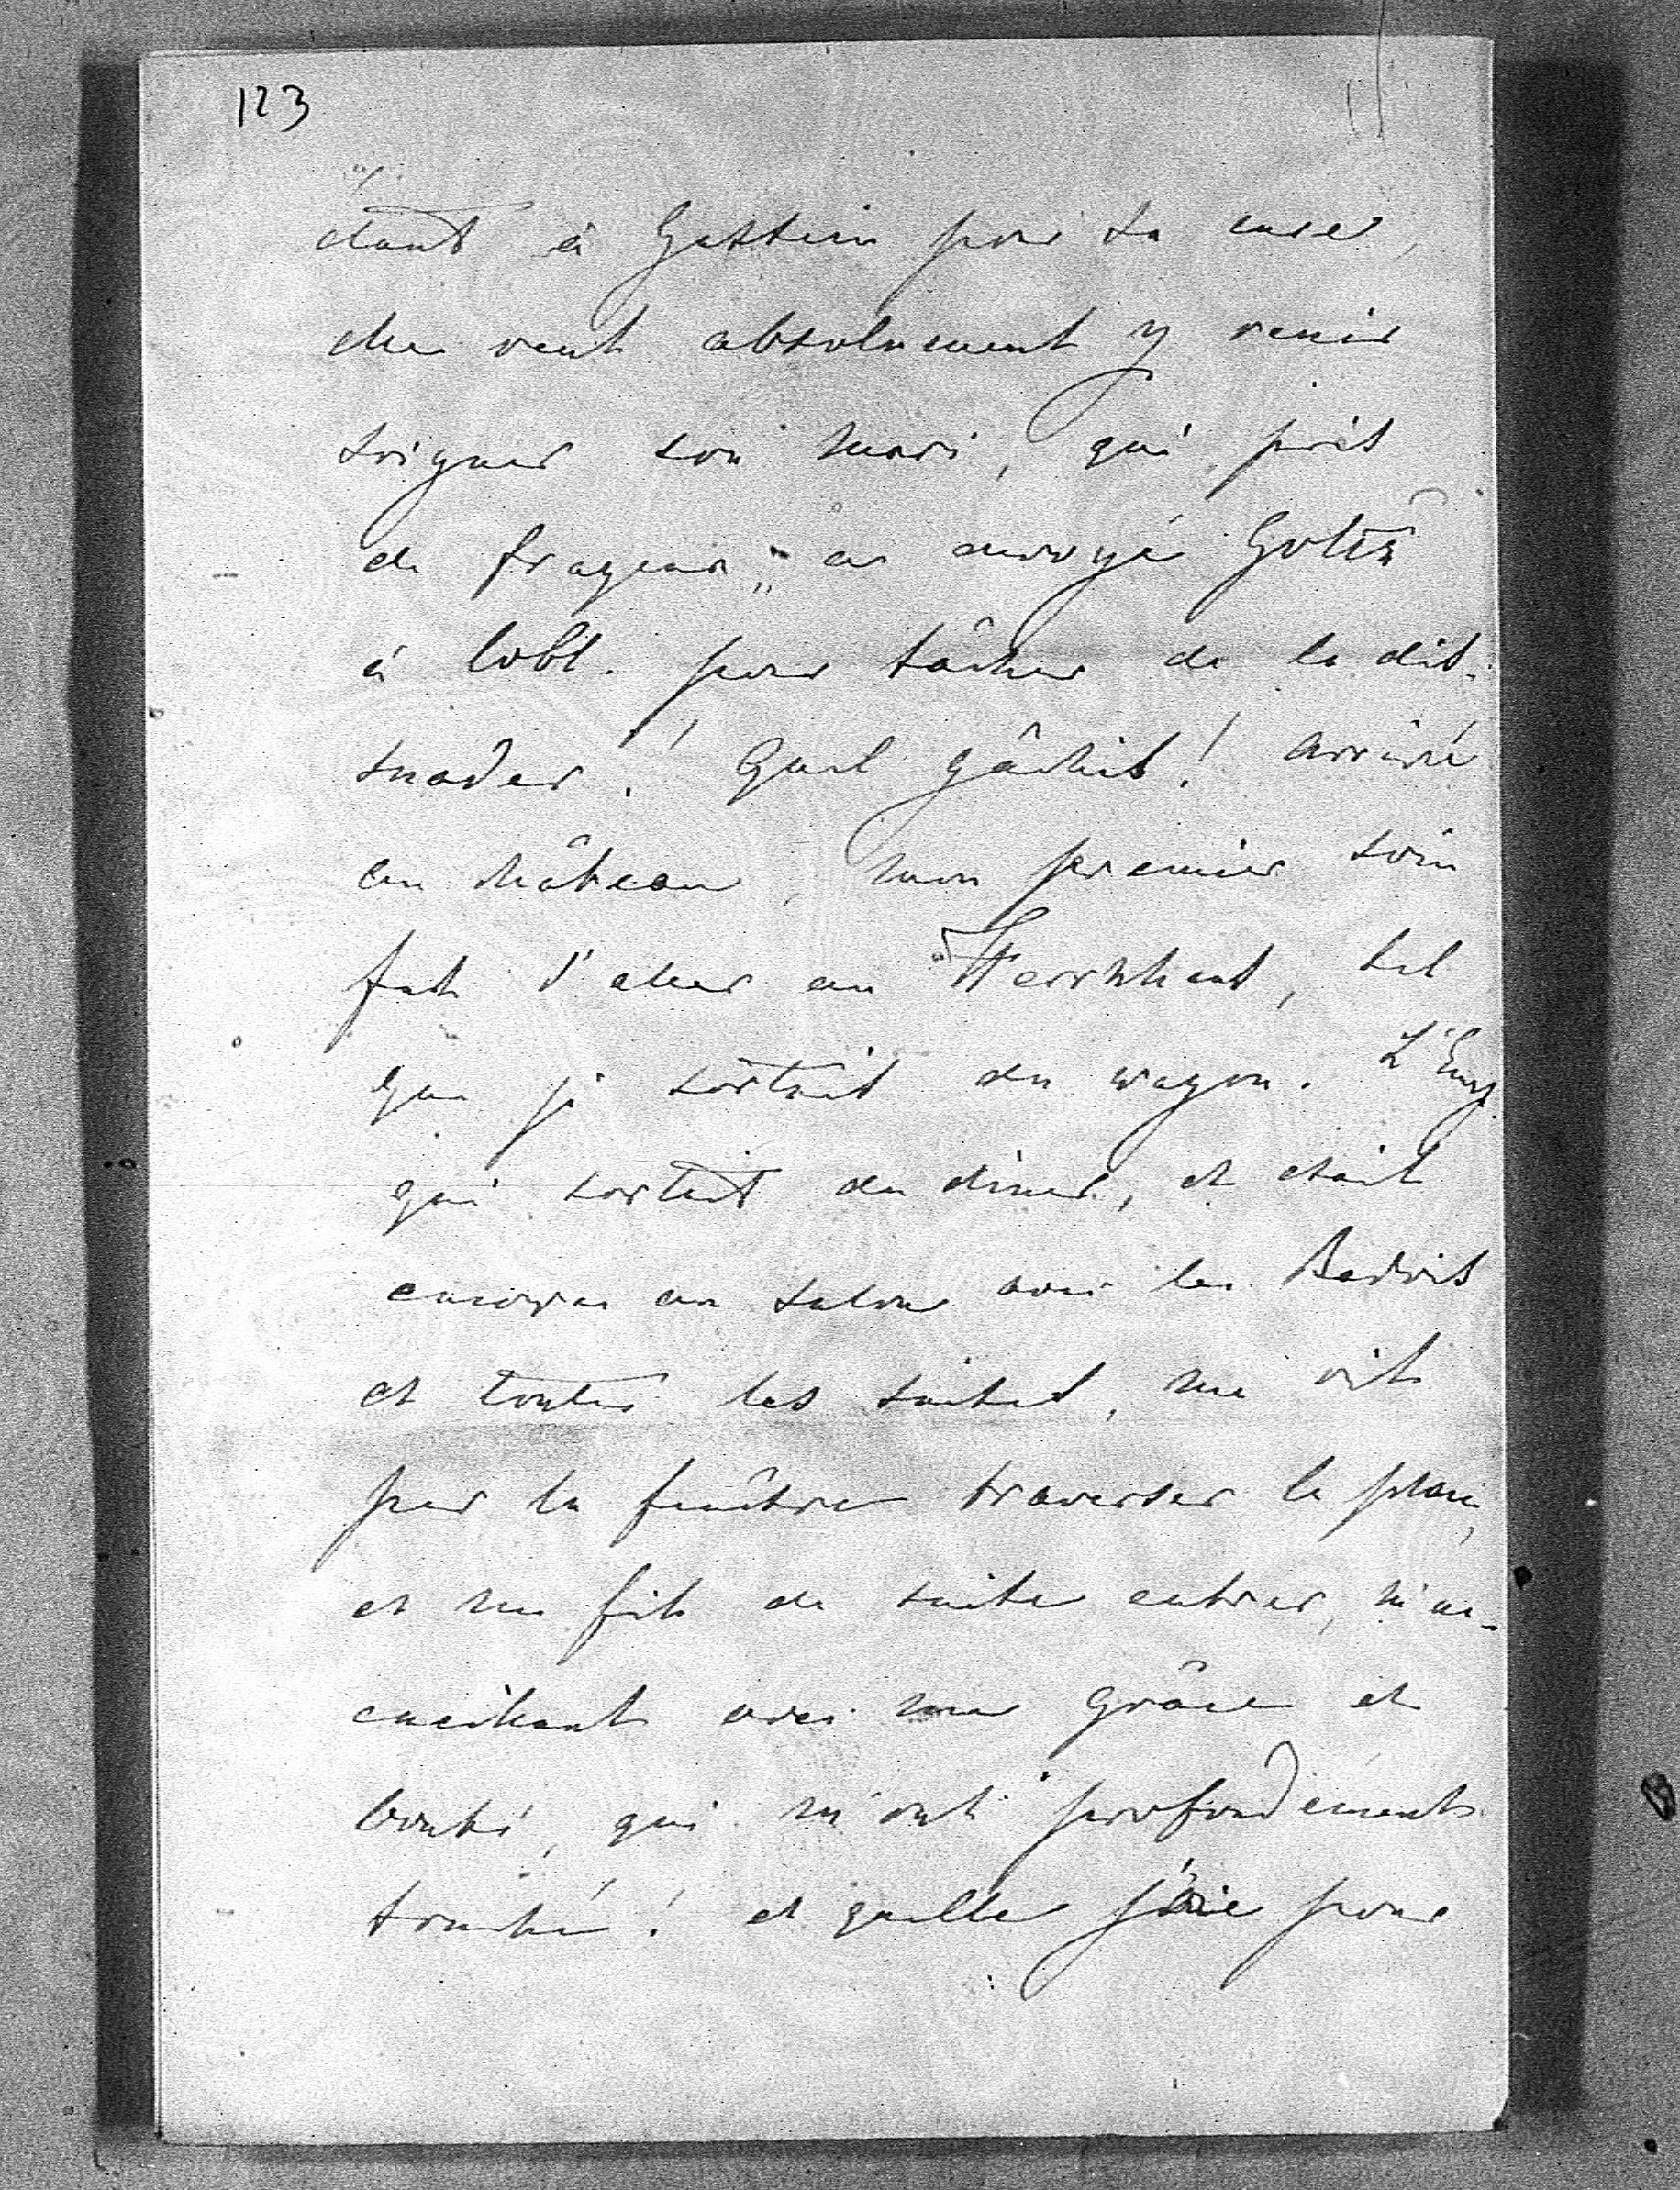 123
dant à Gastein pour sa cure,
elle veut absolument y venir
soigner son mari, qui, pris
de frayeur, a envoyé Goltz
à Cobl. pour tâcher de la dis-
suader! Quel gâchis! Arrivé
au château, mon premier soin
fut d'aller au
que je sortais du wagon. L'Emp.
qui sortait du diner, et était
encore au salon avec les Badois
et toutes les suites, me vit
par la fenêtre traverser la place,
et me fit de suite entrer, m'ac-
cueillant avec une grâce et
bonté, qui m'ont profondément
touché! et quelle joie pour